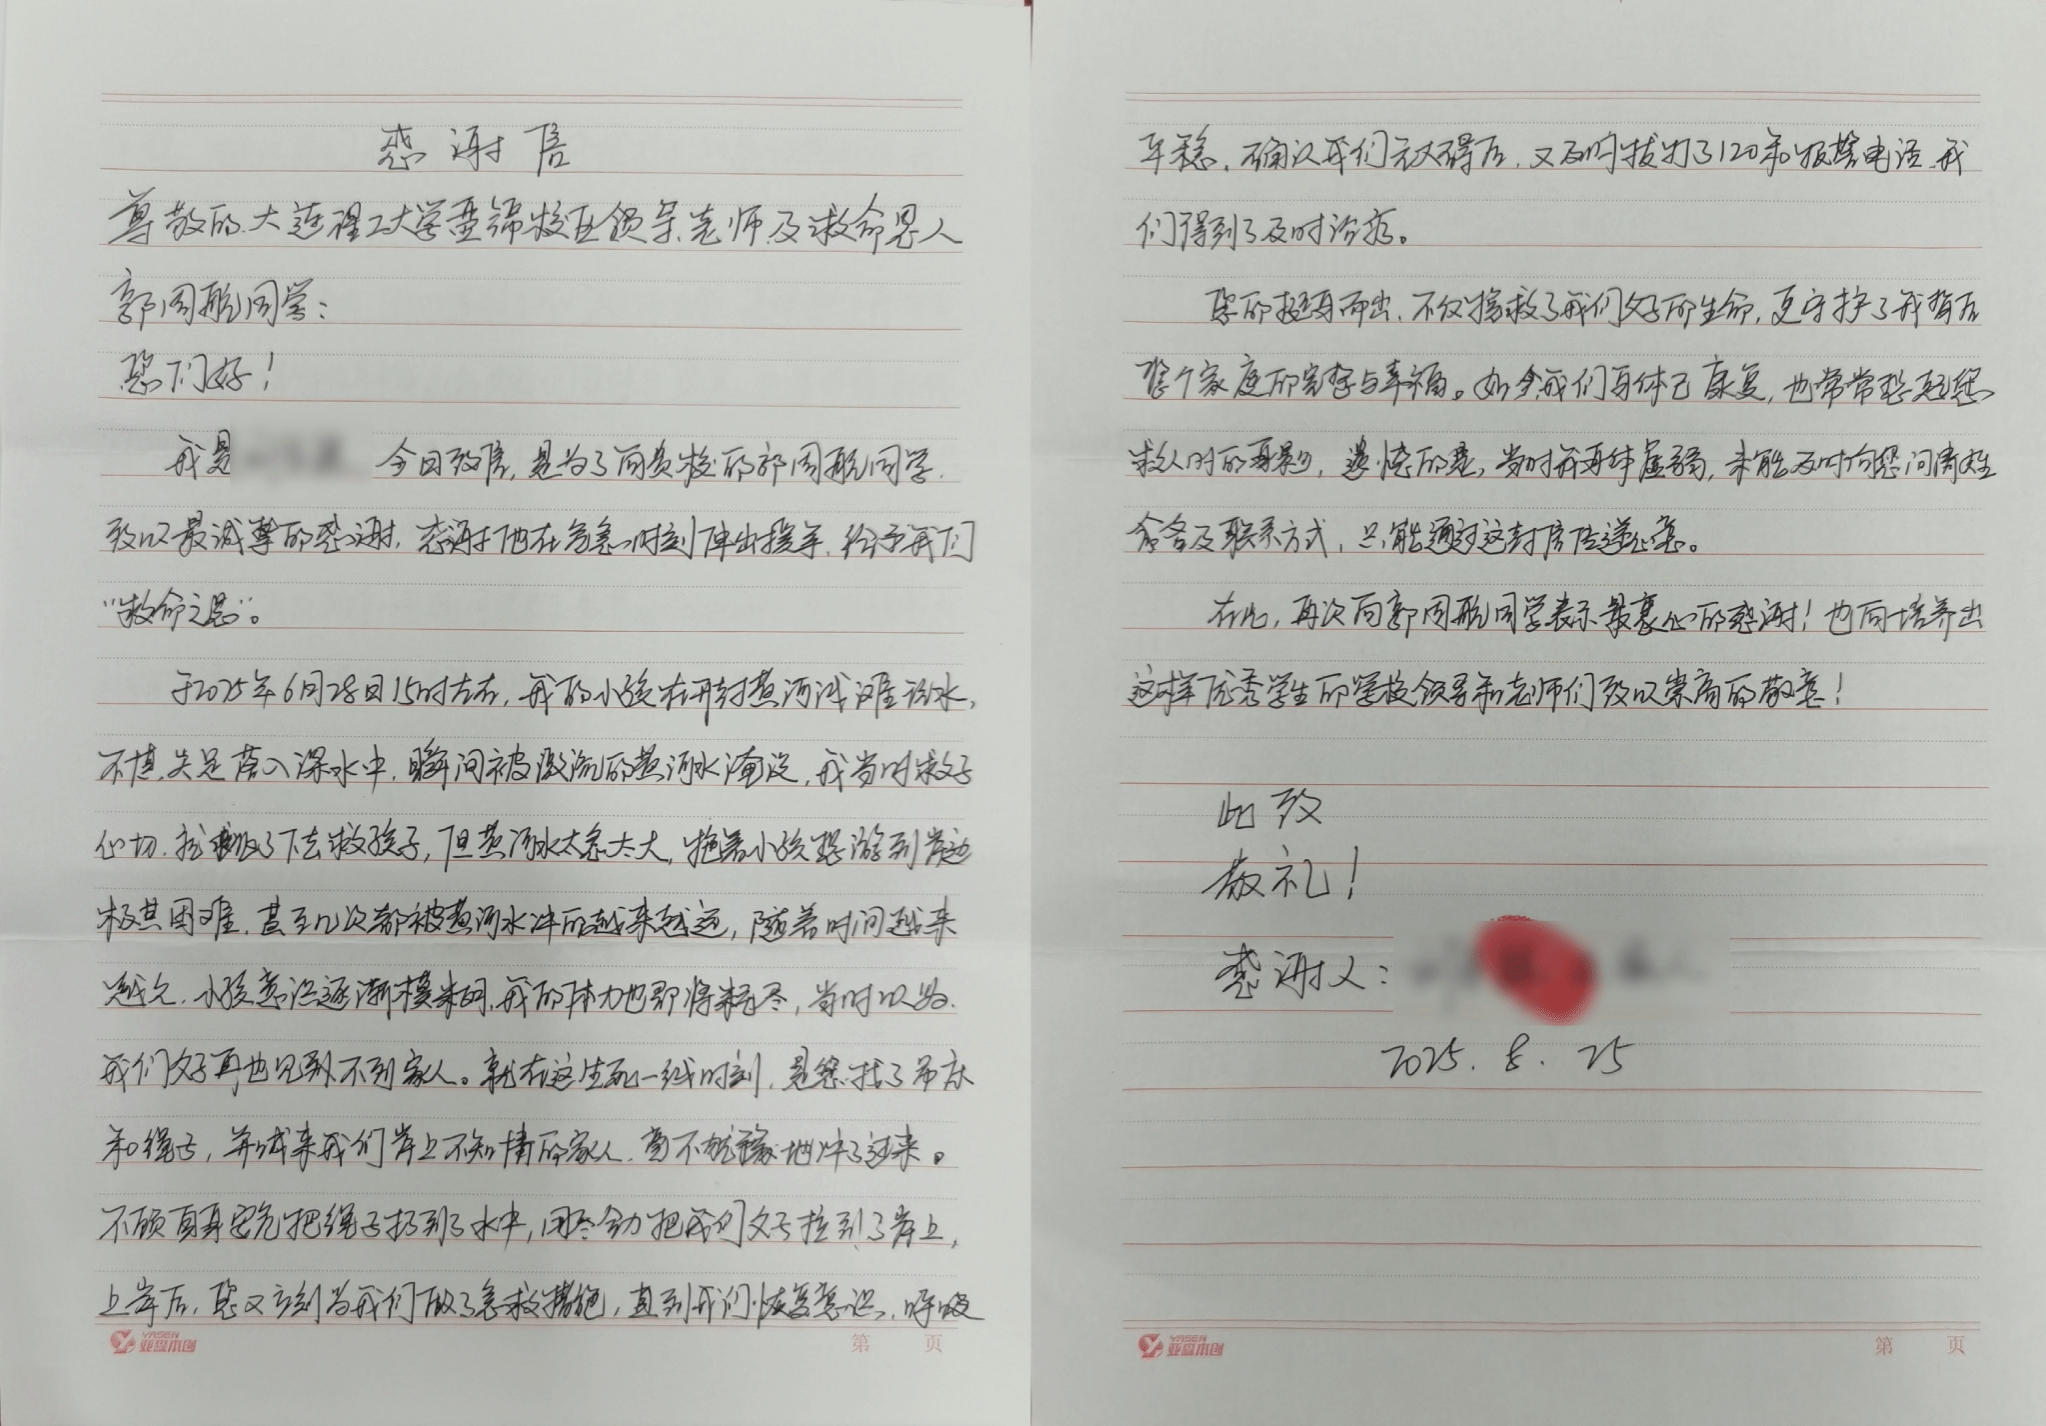 感谢信
尊敬的大连理工大学盘锦校区领导、老师及救命恩人
郭周航同学：
您们好！
我是
今日致信，是为了向贵校的郭周航同学，
致以最诚挚的感谢，感谢他在危急时刻伸出援手，给予我们
“救命之恩”。
于2025年6月28日15时左右，我的小孩在开封黄河浅滩玩水，
不慎失足落入深水中，瞬间被激流的黄河水淹没，我当时救子
心切，就跳了下去救孩子，但黄河水太急太大，抱着小孩想游到岸边
极其困难，甚至几次都被黄河水冲的越来越远，随着时间越来
越久，小孩意识逐渐模糊，我的体力也即将耗尽，当时以为
我们父子再也见到不到家人。就在这生死一线时刻，是您找了吊床
和绳子，并喊来我们岸上不知情的家人，毫不犹豫地冲了过来。
不顾自身安危把绳子扔到了水中，用尽全力把我们父子拉到了岸上，
上岸后，您又立刻为我们做了急救措施，直到我们恢复意识、呼吸
平稳，确认我们无碍后，又及时拔打了120和报警电话，我
们得到了及时治疗。
您的挺身而出，不仅拯救了我们父子的生命，更守护了我背后
整个家庭的完整与幸福。如今我们身体已康复，也常常想起您
救人时的身影，遗憾的是，当时我身体虚弱，未能及时向您问清姓
名及联系方式，只能通过这封信传递心意。
在此，再次向郭周航同学表示最衷心的感谢！也向培养出
这样优秀学生的学校领导和老师们致以崇高的敬意！
此致
敬礼！
感谢人：
2025.8.25
YASEN
亚盛本创
第 页
YASEN
亚盛本创
第 页